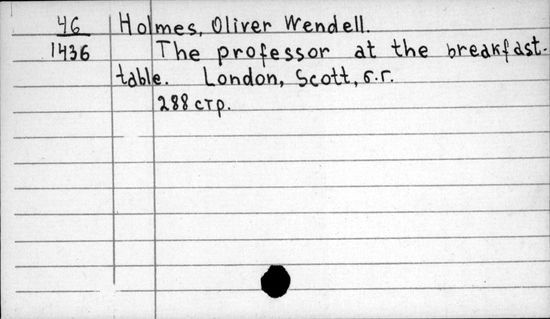 46 Holmes, Oliver Wendell.
1436 The professor at the breakfast-
table. London, Scott, б.г.
288 стр.